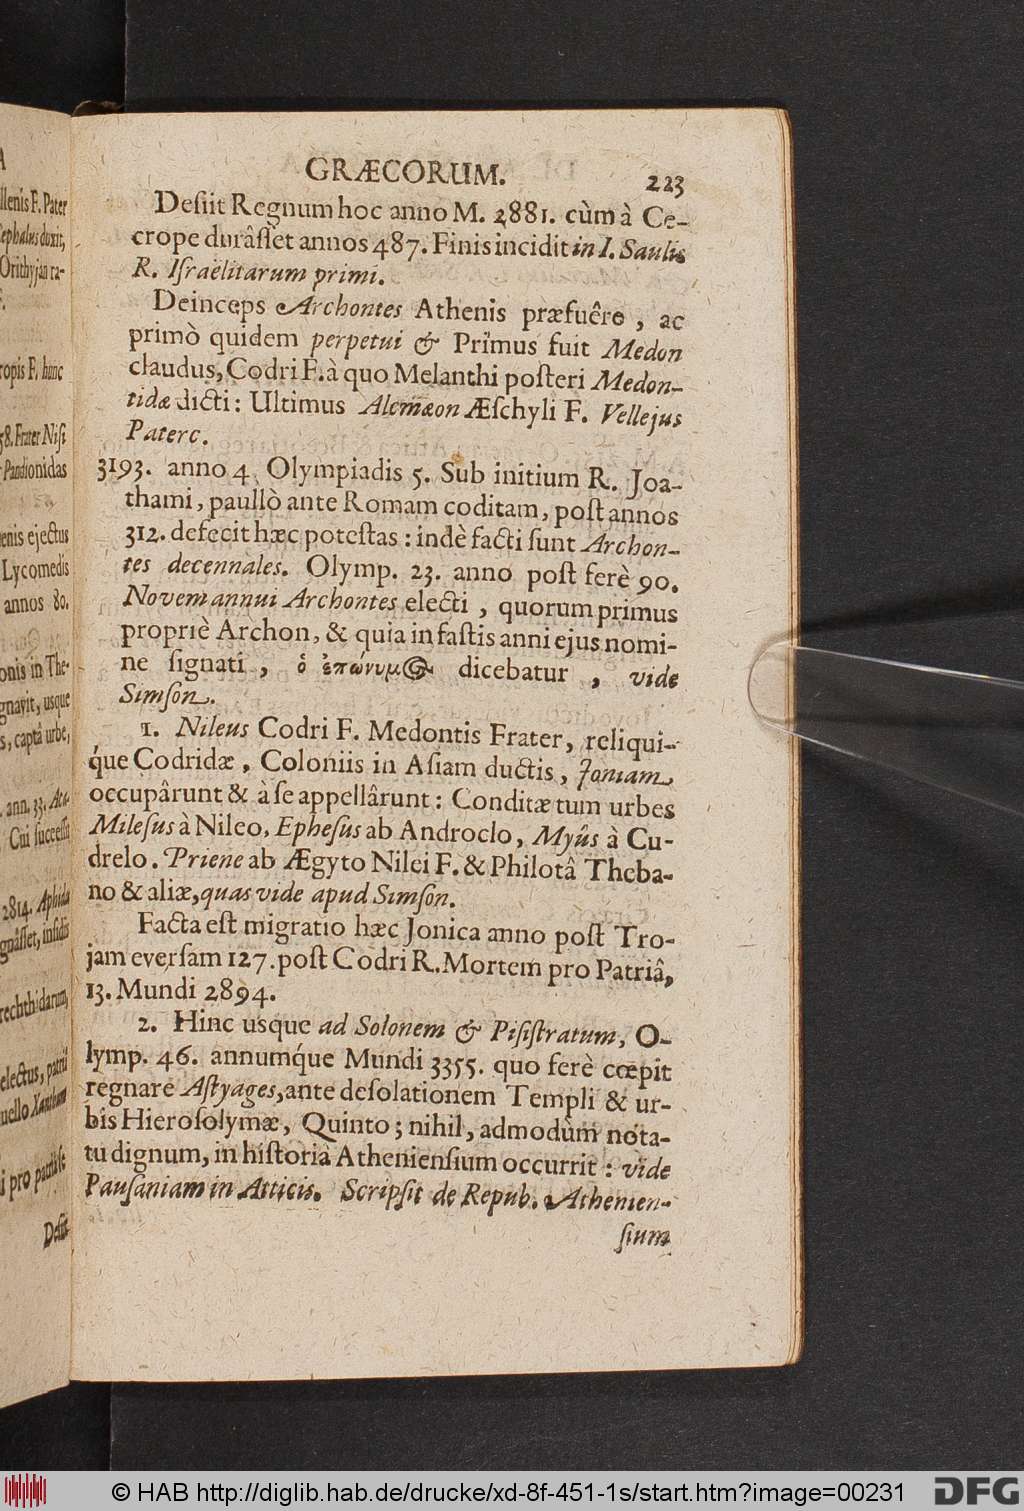 llenis F. Pater
Cephalus duxit,
Orithyjan ra-
ropis F. hunc
58. Frater Nisi
Pandionidas
enis ejectus
Lycomedis
annos 80.
onis in The-
gnavit, usque
s, captâ urbe,
ann. 33. Aca-
Cui successit
2814. Aphidas
gnâsset, insidiis
rechthidarum,
electus, patrii
uello Xanthum
i pro patria se
Desiit
GRÆCORUM. 223
Deſiit Regnum hoc anno M. 2881. cùm à Ce-
crope durâſſet annos 487. Finis incidit in I. Saulis
R. Iſraëlitarum primi.
Deinceps Archontes Athenis præfuêre, ac
primò quidem perpetui & Primus fuit Medon
claudus, Codri F. à quo Melanthi poſteri Medon-
tidæ dicti: Ultimus Alcmæon Æſchyli F. Vellejus
Paterc.
3193. anno 4. Olympiadis 5. Sub initium R. Joa-
thami, paullò ante Romam coditam, poſt annos
312. defecit hæc poteſtas: indè facti ſunt Archon-
tes decennales. Olymp. 23. anno poſt ferè 90.
Novem annui Archontes electi, quorum primus
propriè Archon, & quia in faſtis anni ejus nomi-
ne ſignati, ὁ ἐπώνυμος dicebatur, vide
Simſon.
1. Nileus Codri F. Medontis Frater, reliqui-
q́ue Codridæ, Coloniis in Aſiam ductis, Joniam
occupârunt & à ſe appellârunt: Conditæ tum urbes
Mileſus à Nileo, Epheſus ab Androclo, Myûs à Cu-
drelo. Priene ab Ægyto Nilei F. & Philotâ Theba-
no & aliæ, quas vide apud Simſon.
Facta eſt migratio hæc Jonica anno poſt Tro-
jam everſam 127. poſt Codri R. Mortem pro Patriâ,
13. Mundi 2894.
2. Hinc usque ad Solonem & Piſiſtratum, O-
lymp. 46. annumq́ue Mundi 3355. quo ferè cœpit
regnare Aſtyages, ante deſolationem Templi & ur-
bis Hieroſolymæ, Quinto; nihil, admodùm nota-
tu dignum, in hiſtoria Athenienſium occurrit: vide
Pauſaniam in Atticis. Scripſit de Repub. Athenien-
ſium
© HAB http://diglib.hab.de/drucke/xd-8f-451-1s/start.htm?image=00231
DFG